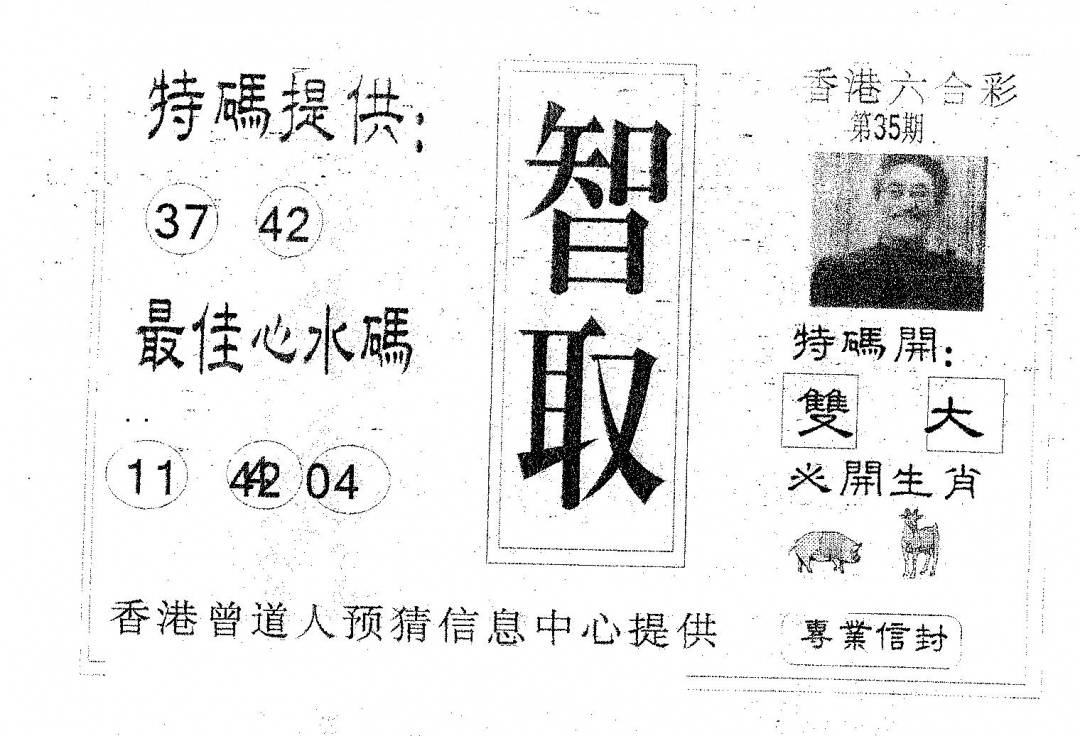 特碼提供:
37 42
最佳心水碼
..
11 42 04
智取
香港六合彩
第35期
特碼開:
雙 大
必開生肖
香港曾道人预猜信息中心提供
專業信封